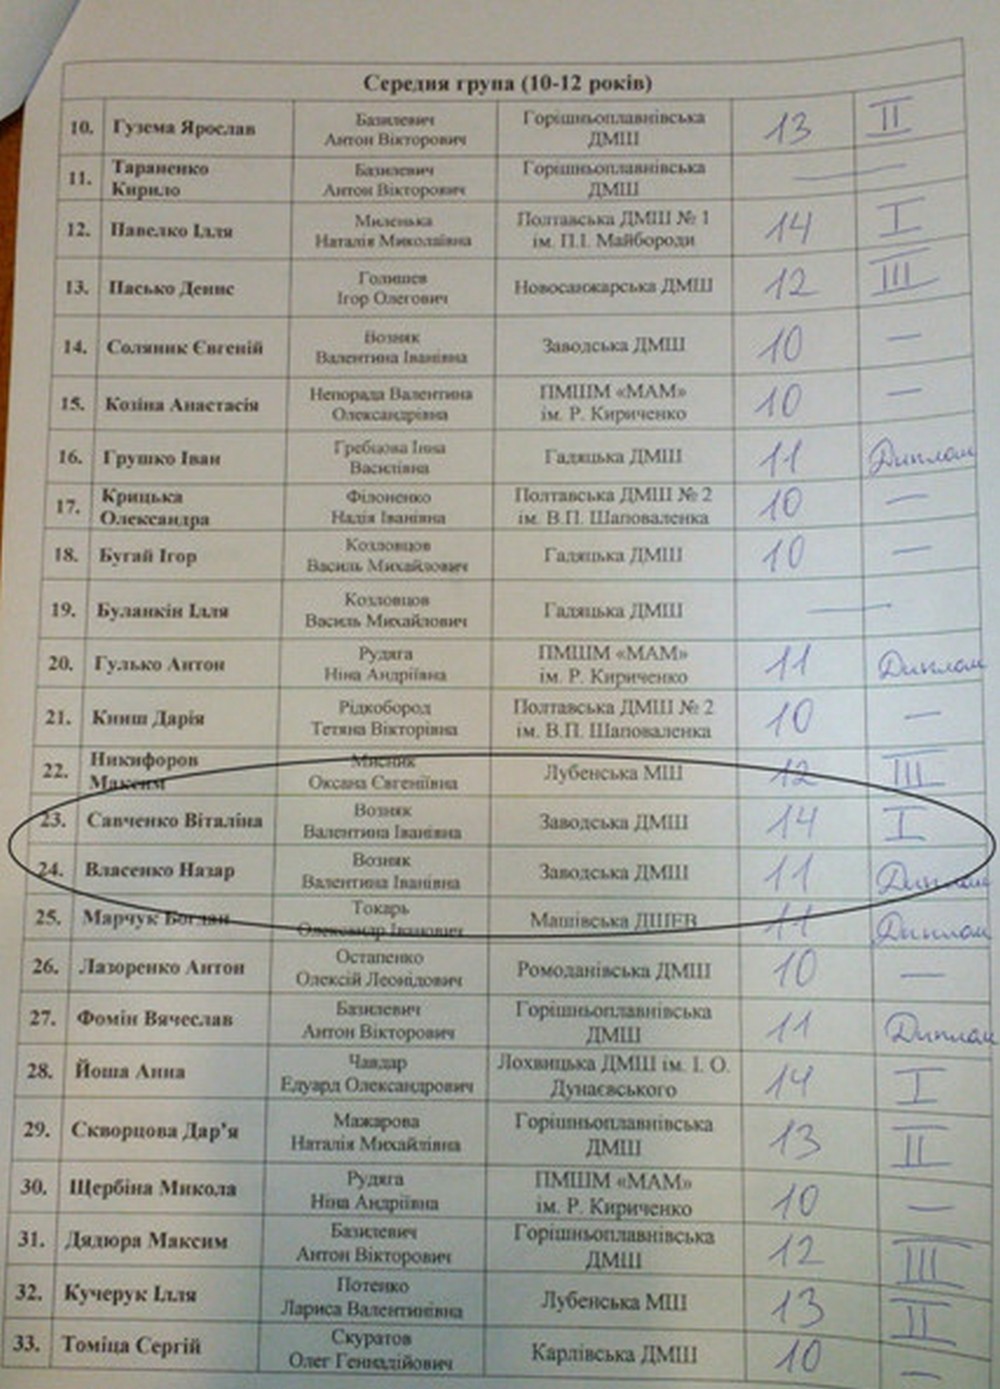 Середня група (10-12 років)
10. Гузема Ярослав Базилевич Антон Вікторович Горішньоплавнівська ДМШ 13 II
11. Тараненко Кирило Базилевич Антон Вікторович Горішньоплавнівська ДМШ —
12. Павелко Ілля Миленька Наталія Миколаївна Полтавська ДМШ № 1 ім. П.І. Майбороди 14 I
13. Пасько Денис Голишев Ігор Олегович Новосанжарська ДМШ 12 III
14. Соляник Євгеній Возняк Валентина Іванівна Заводська ДМШ 10 —
15. Козіна Анастасія Непорада Валентина Олександрівна ПМШМ «МАМ» ім. Р. Кириченко 10 —
16. Грушко Іван Гребцова Інна Василівна Гадяцька ДМШ 11 Диплом
17. Крицька Олександра Філоненко Надія Іванівна Полтавська ДМШ № 2 ім. В.П. Шаповаленка 10 —
18. Бугай Ігор Козловцов Василь Михайлович Гадяцька ДМШ 10 —
19. Буланкін Ілля Козловцов Василь Михайлович Гадяцька ДМШ —
20. Гулько Антон Рудяга Ніна Андріївна ПМШМ «МАМ» ім. Р. Кириченко 11 Диплом
21. Книш Дарія Рідкобород Тетяна Вікторівна Полтавська ДМШ № 2 ім. В.П. Шаповаленка 10 —
22. Никифоров Максим Мисник Оксана Євгеніївна Лубенська МШ 12 III
23. Савченко Віталіна Возняк Валентина Іванівна Заводська ДМШ 14 I
24. Власенко Назар Возняк Валентина Іванівна Заводська ДМШ 11 Диплом
25. Марчук Богдан Токарь Олександр Іванович Машівська ДШЕВ 11 Диплом
26. Лазоренко Антон Остапенко Олексій Леонідович Ромоданівська ДМШ 10 —
27. Фомін Вячеслав Базилевич Антон Вікторович Горішньоплавнівська ДМШ 11 Диплом
28. Йоша Анна Чавдар Едуард Олександрович Лохвицька ДМШ ім. І. О. Дунаєвського 14 I
29. Скворцова Дар’я Мажарова Наталія Михайлівна Горішньоплавнівська ДМШ 13 II
30. Щербіна Микола Рудяга Ніна Андріївна ПМШМ «МАМ» ім. Р. Кириченко 10 —
31. Дядюра Максим Базилевич Антон Вікторович Горішньоплавнівська ДМШ 12 III
32. Кучерук Ілля Потенко Лариса Валентинівна Лубенська МШ 13 II
33. Томіца Сергій Скуратов Олег Геннадійович Карлівська ДМШ 10 —